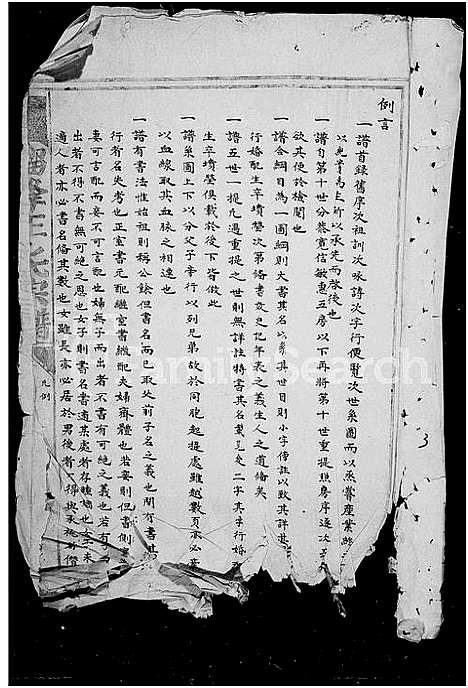 例言
一譜首錄舊序次祖訓次詠詩次字行便覽次世系圖而以烝嘗產業終
以光前為上所以承先而啟後也
一譜自第十世分恭寬信敏惠五房以下再將第十世重提照房序逐次
欲其便於檢閱也
一譜合綱目為一圖綱則大書其名以系其世目則小字傍註以致其詳其
行婚配生卒墳塋次第備書文史記年表之義生人之道繪矣
一譜五世一提凡遇重提之世則無詳註特書其名二字其字行婚
生卒墳塋俱載於後下皆倣此
一譜系圖上下以分父子率行以列兄弟故於同胞起提處雖越數頁亦必
以血線取其血脉之相連也
一譜有書法惟始祖則稱公餘但書名而已取父前子名之義也間有書其
行者名失考也正室書元配繼室書繼配夫婦齊體也若妾則但書側室
妻可言配而妾不可言配也婦無子而出者不書有可絕之義也若有
出者不得不書無可絕之恩也女子則書名嘗適某處者存瞳鳩也女未
適人者亦必書名備其數也女雖長亦必居於男後者
王氏宗譜
凡例
3
FamilySearch